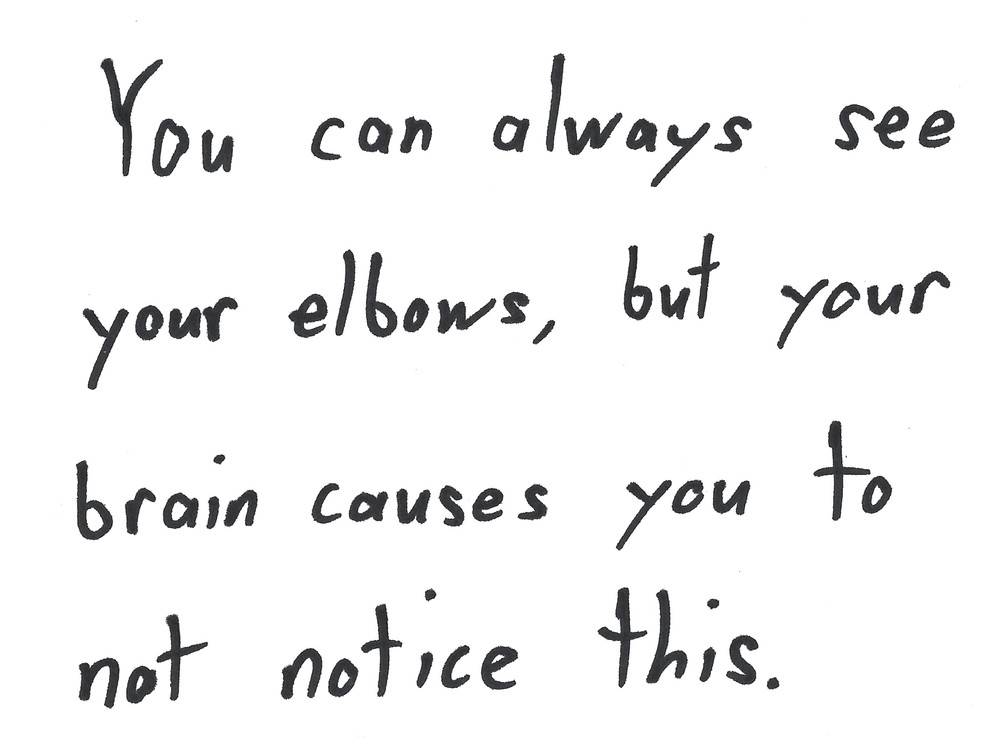 You can always see
your elbows, but your
brain causes you to
not notice this.